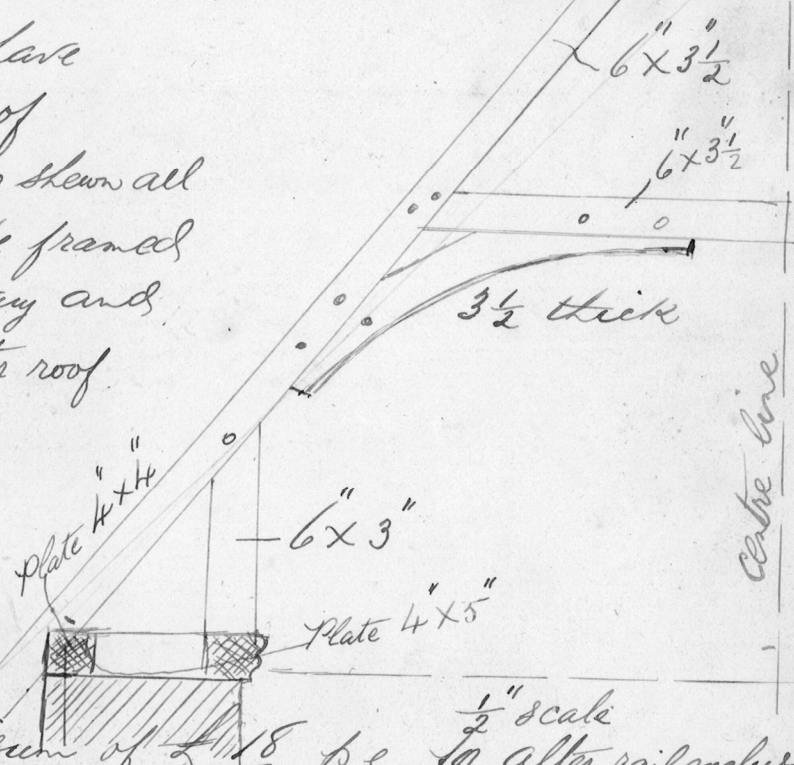 of
shewn all
framed
and
roof
6" x 3 1/2"
6" x 3 1/2"
3 1/2 thick
Centre line
Plate 4" x 4"
6" x 3"
Plate 4" x 5"
1/2" scale
of £ 18
after